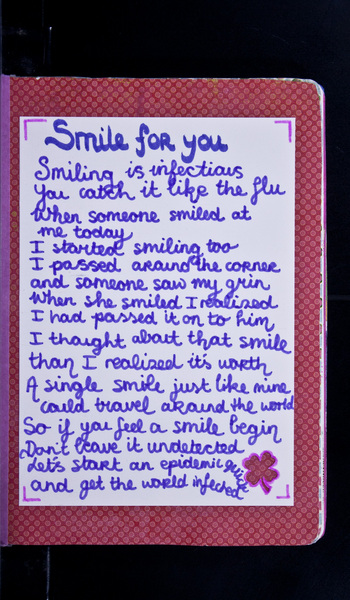 Smile for you
Smiling is infectious
You catch it like the flu
When someone smiled at
me today
I started smiling too
I passed around the corner
and someone saw my grin
When she smiled I realized
I had passed it on to him
I thought about that smile
than I realized it's worth
A single smile just like mine
could travel around the world
So if you feel a smile begin
Don't leave it undetected
Let's start an epidemic quick
and get the world infected